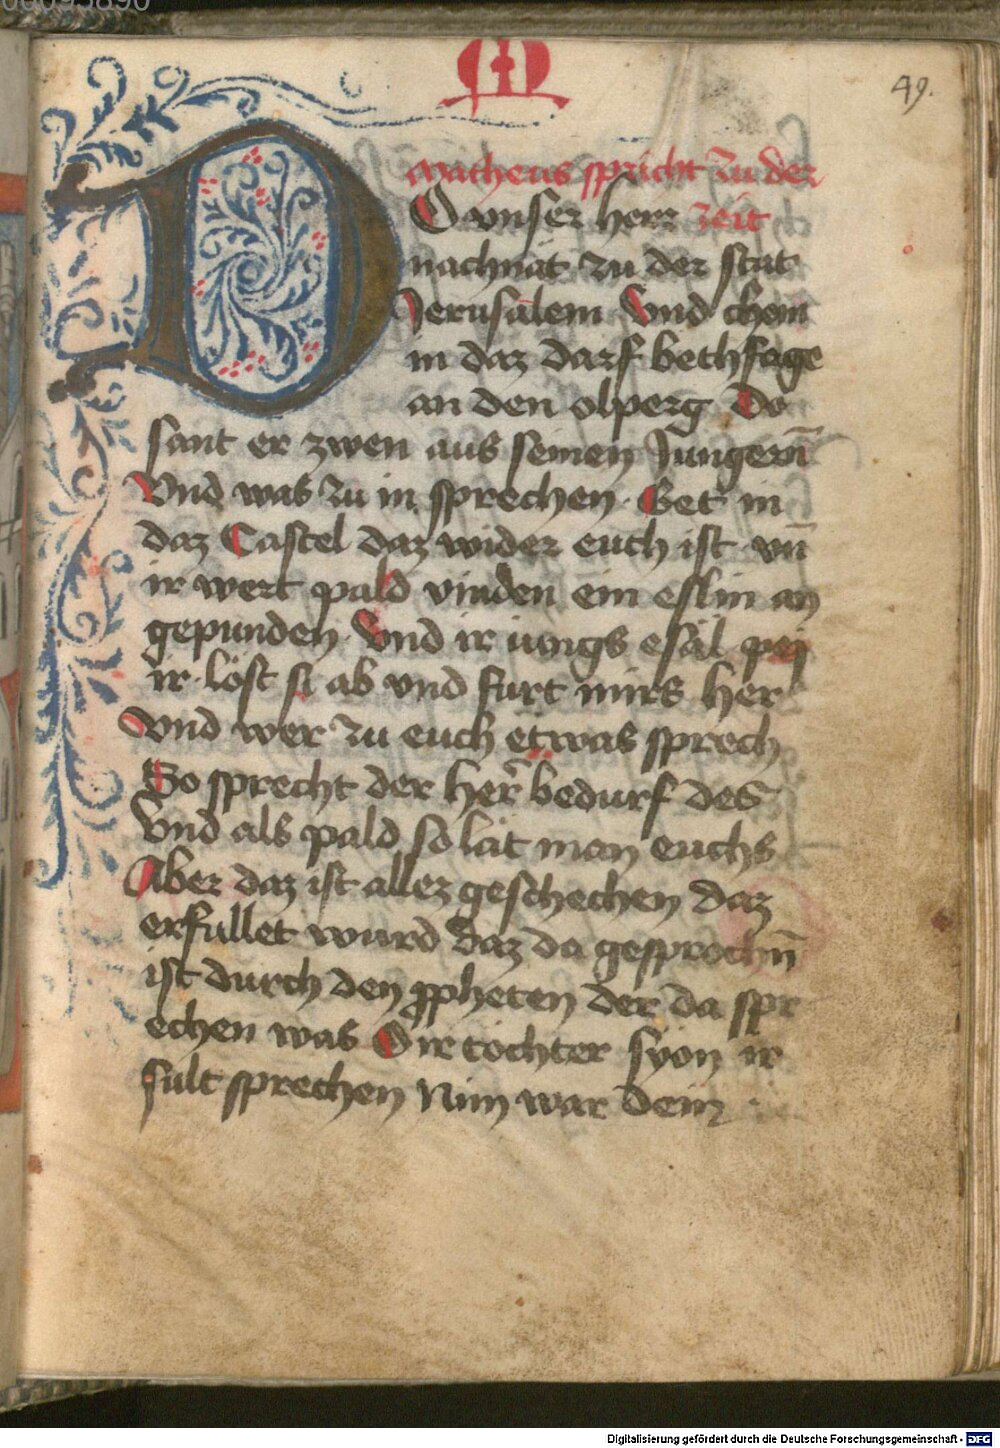 00095890
M
49.
Matheus spricht zu der
DO vnser herr zeit
nachnät zu der stat
Jerusalem Vnd chom
in daz darf bethfage
an den olperg Do
sant er zwen aus seinen Jungern̄
Vnd was zu in sprechen. Get in
daz Castel daz wider euch ist vn̄
ir wert pald vinden ein eslin an
gepunden. Vnd ir iungs esäl pej
ir. löst si ab vnd furt mirs her
Vnd wer zu euch etwas sprech
So sprecht der her̄ bedurf des
Vnd als pald so lät man euchs
Aber daz ist allez geschechen daz
erfullet wurd daz da gesprochn̄
ist durch den ꝓpheten der da spr
echen was Dir tochter syon ir
sult sprechen Nim war dein
Digitalisierung gefördert durch die Deutsche Forschungsgemeinschaft - DFG